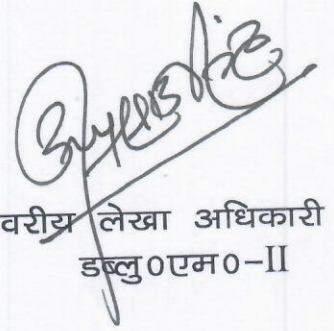 वरीय लेखा अधिकारी
डब्लु०एम०-II